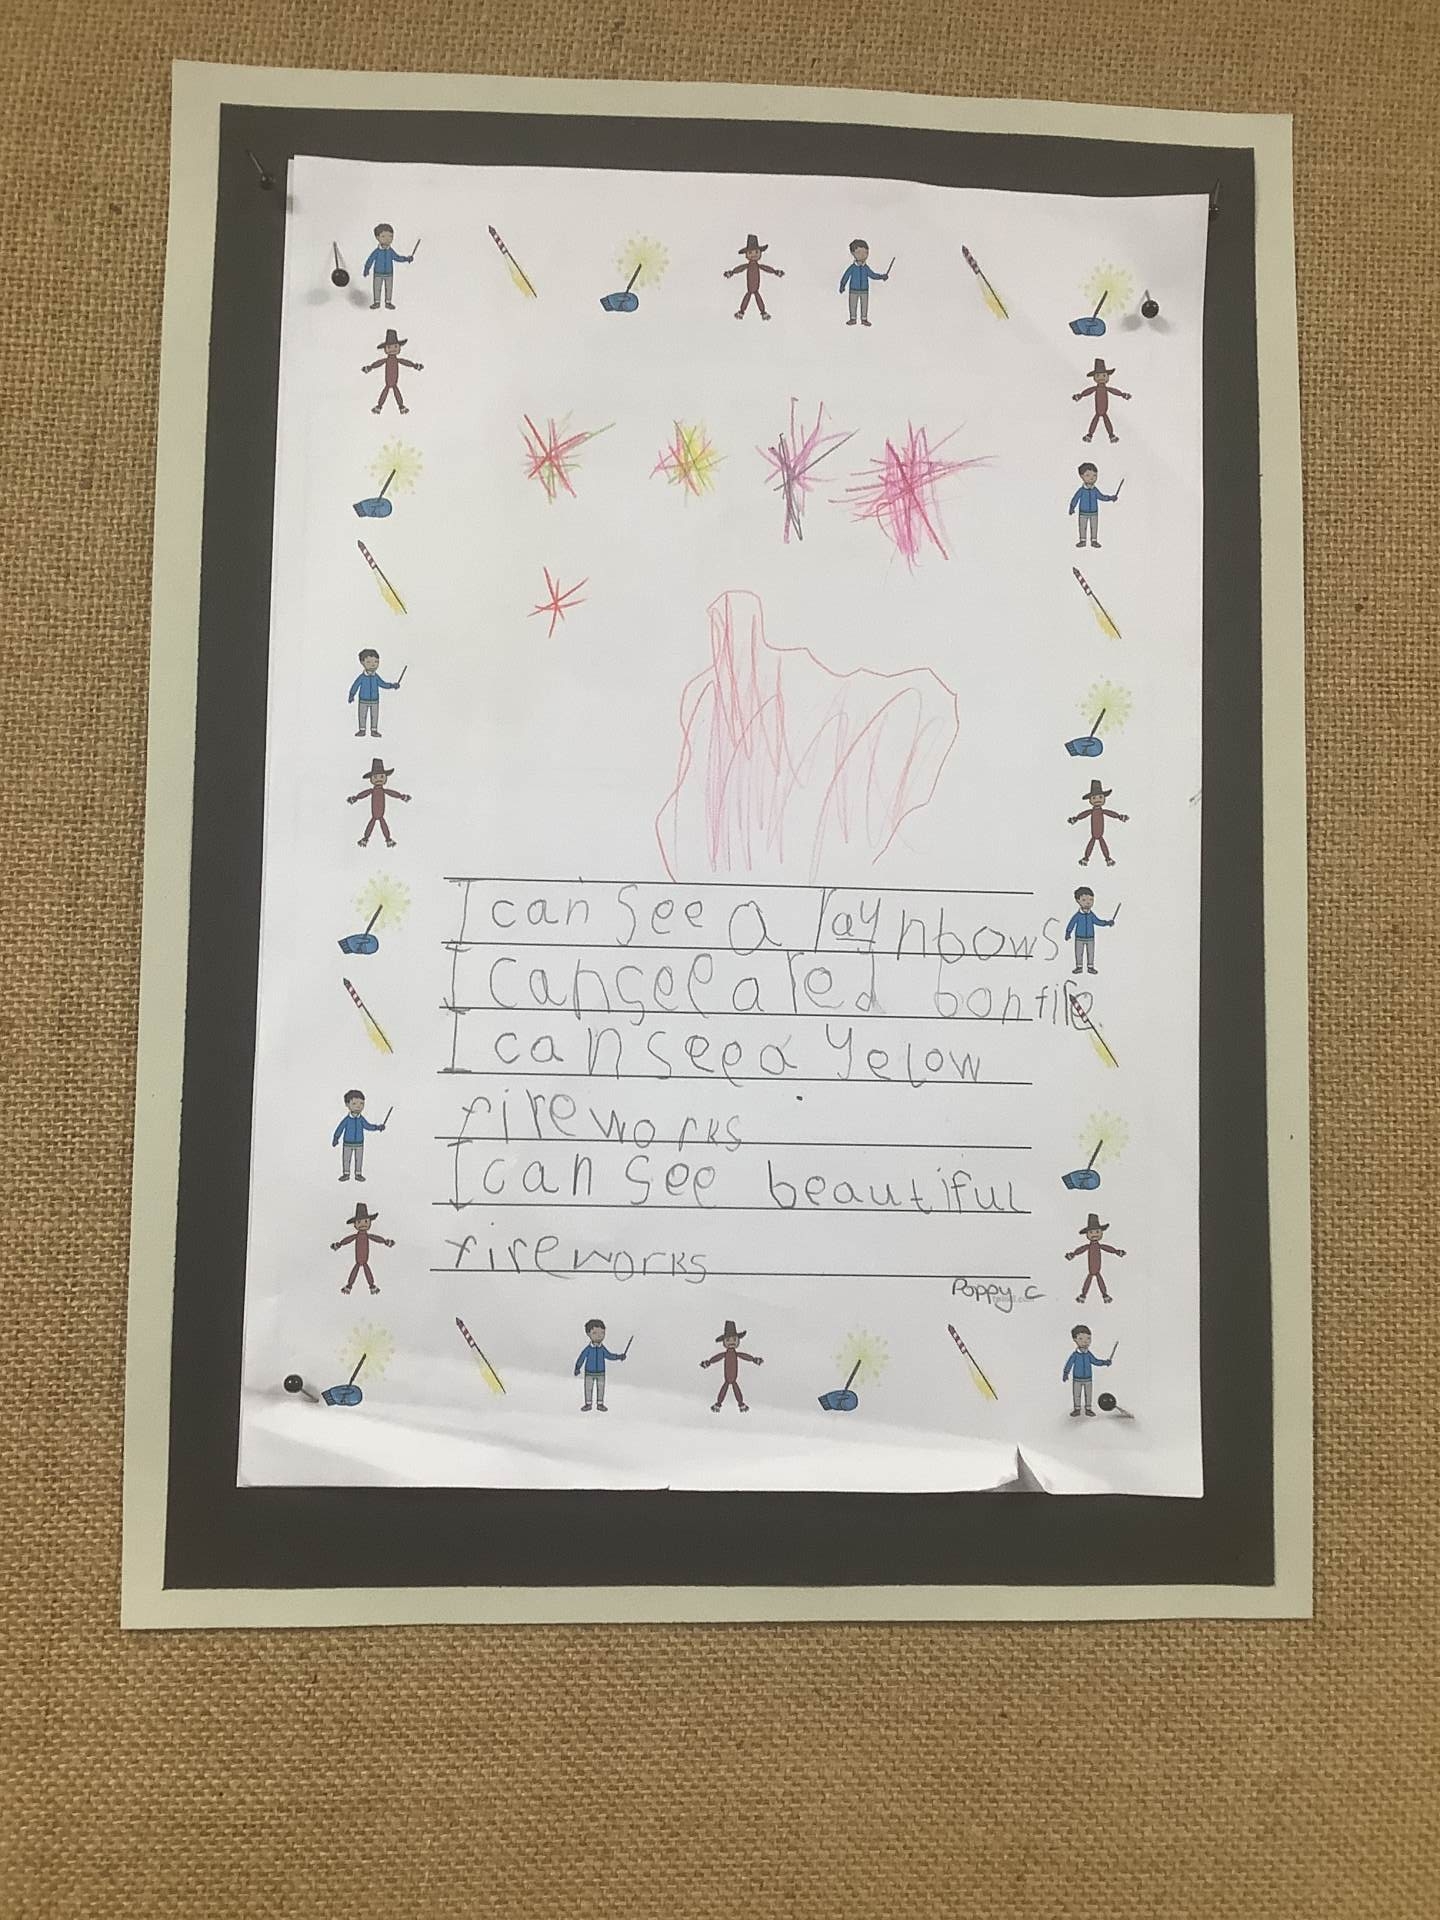 I can see a raynbows
I can see a red bonfire.
I can see a yelow
fireworks
I can see beautiful
fireworks
Poppy C